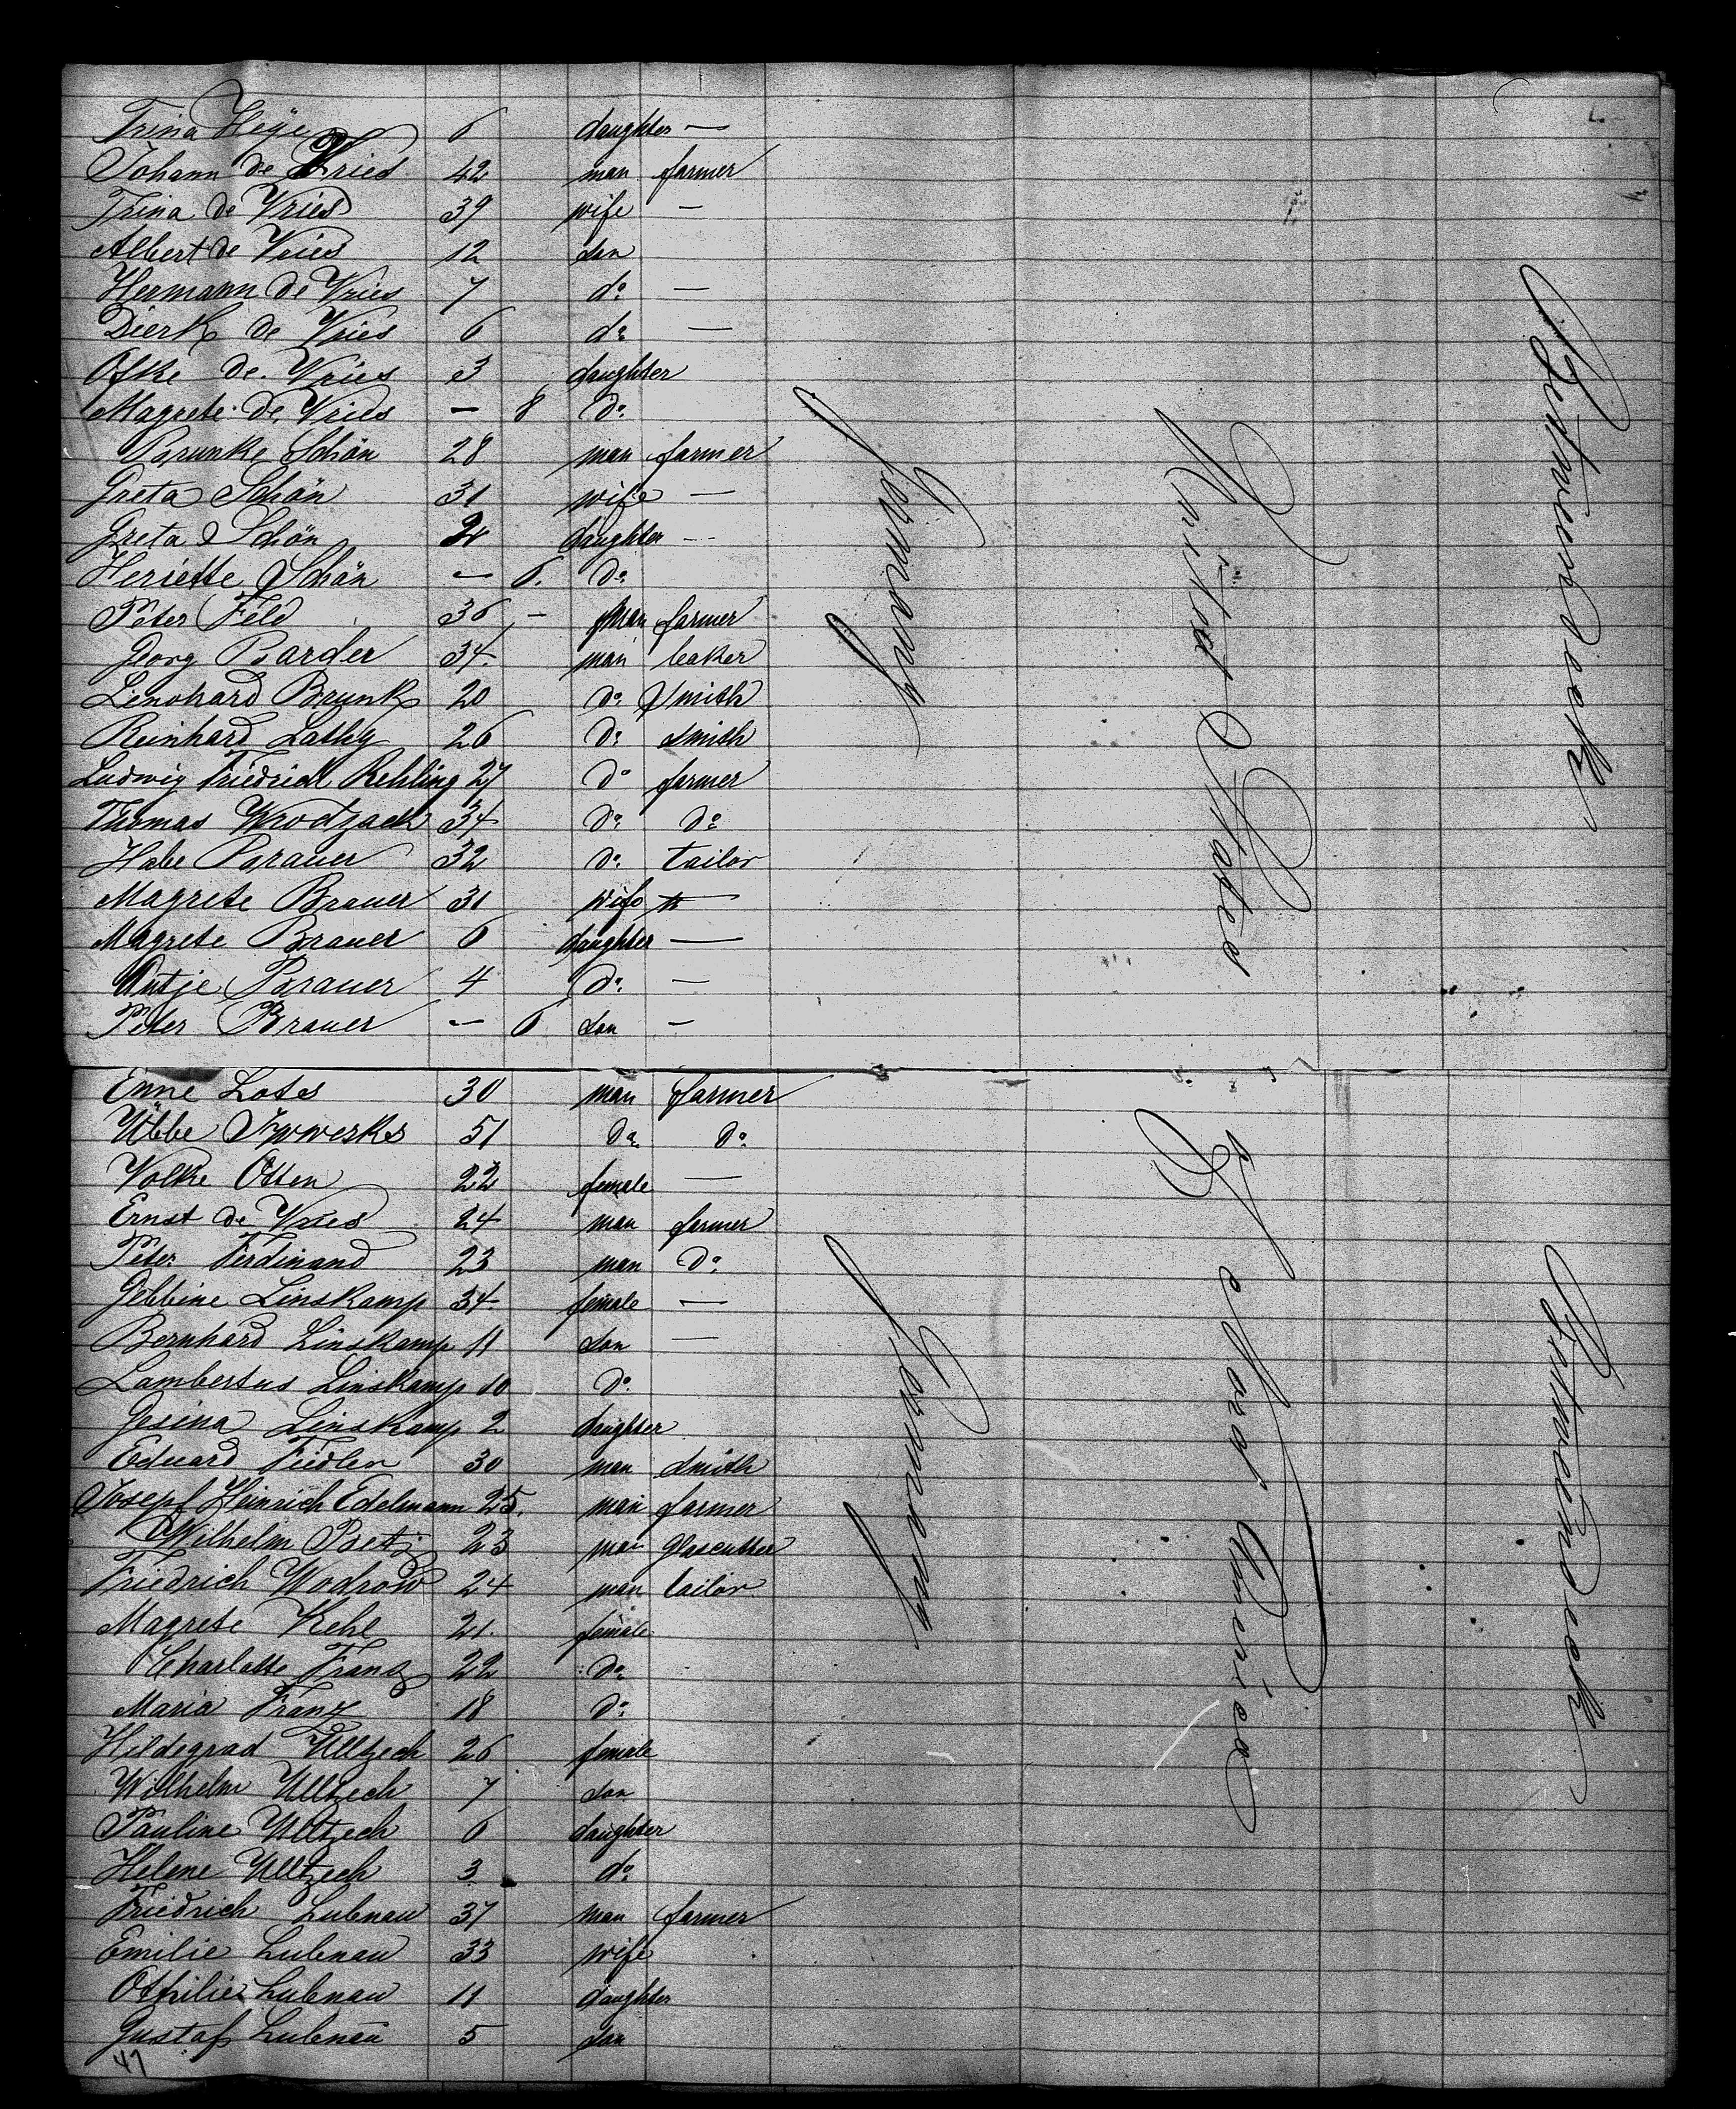 Trina Heÿe 6 daughter —
Johann de Vries 42 man farmer
Trina de Vries 39 wife —
Albert de Vries 12 son
Hermann de Vries 7 do —
Dierk de Vries 6 do —
Ofke de Vries 3 daughter
Magrete de Vries — 8 do
Brunke Schön 28 man farmer
Greta Schön 31 wife —
Greta Schön daughter --
Heriette Schön — 6. do
Peter Feld 36 — man farmer
Georg Barder 34. man baker
Lenohard Brunk 20 do Smith
Reinhard Lathy 26 do smith
Ludwig Friedrich Rehling 27 do farmer
Thomas Wrodzack 34 do do
Habe Brauer 32 do tailor
Magrete Brauer 31 wife —
Magrete Brauer 6 daughter —
Antje Brauer 4 do —
Peter Brauer — 6 son —
Germany
United States
Between Deck
Enne Lots 30 man farmer
Ubbe 51 do do
Volke Otten 22 female —
Ernst de Vries 24 man farmer
Peter Ferdinand 23 man do
Gebbine Linskamp 34 female —
Bernhard Linskamp 11 son —
Lambertus Linskamp 10 do
Gesina Linskamp 2 daughter
Eduard Fiedler 30 man smith
Josepf Heinrich Edelmann 25. man farmer
Wilhelm Betz 23 man glascutter
Friedrich Wodrow 24 man tailor
Magrete Kehl 21. female
Charlotte Franz 22 do
Maria Franz 18 do
Hildegrad Ulltzech 26 female
Willhelm Ulltzech 7 son
Pauline Ulltzech 6 daughter
Helene Ulltzech 3 do
Friedrich Lubnau 37 man farmer
Emilie Lubnau 33 wife
Othilie Lubnau 11 daughter
Gustaf Lubnau 5 son
47
Germany
of North America
Between Deck